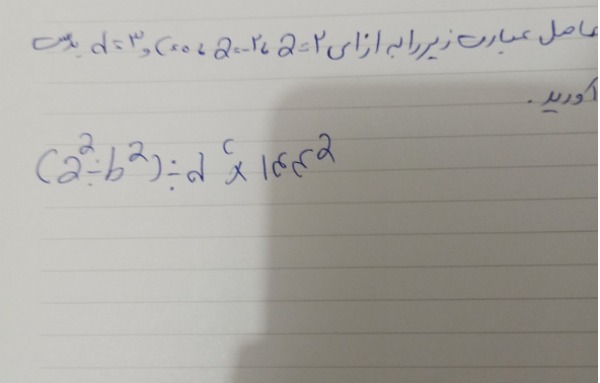 حاصل عبارت زیر را به ازای a=۲ ، a=-۲ ، c=0 و d=۳ بدست
آورید.
(a²÷b²)÷d^c × 144²